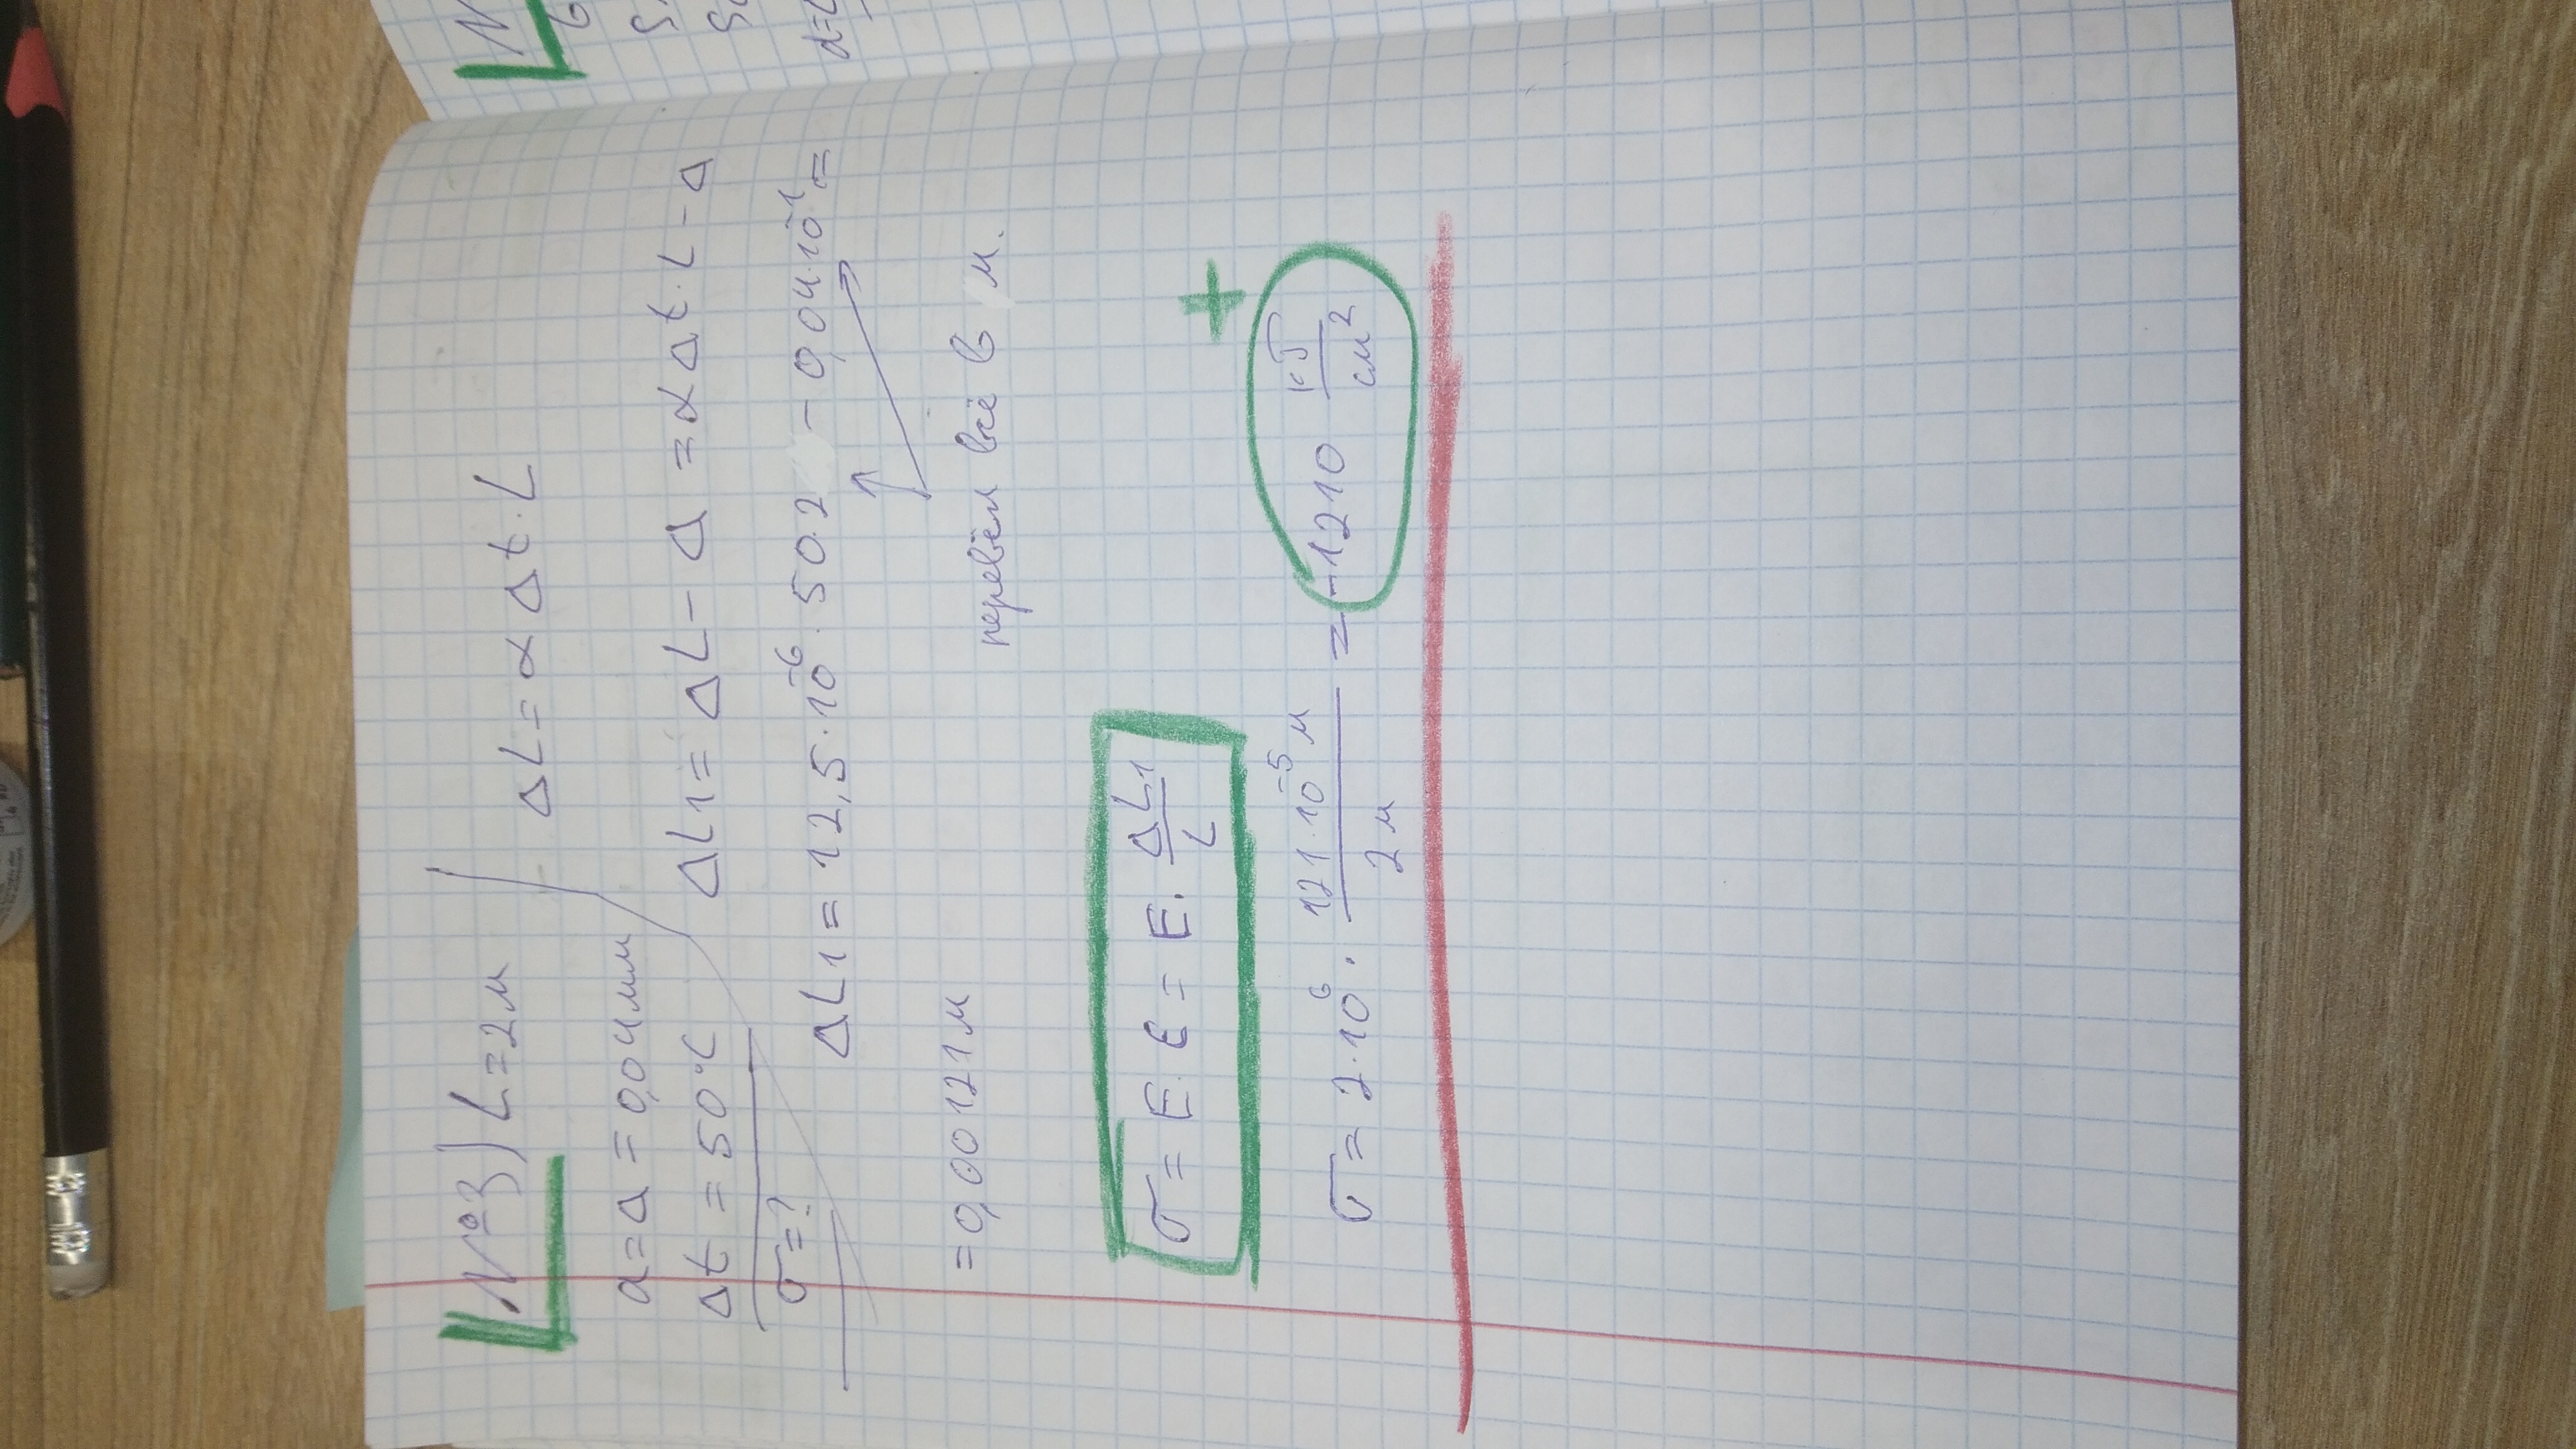 №3) L=2м
a=Δ=0,04мм
Δt=50°C
σ=?
ΔL=αΔt·L
ΔL1=ΔL-Δ=αΔt·L-Δ
ΔL1=12,5·10^-6·50·2 -0,04·10^-1=
=0,00121м
перевёл всё в м.
σ=E·ε=E·ΔL1/L
σ=2·10^6·121·10^-5м/2м=-1210 кГ/см²
+